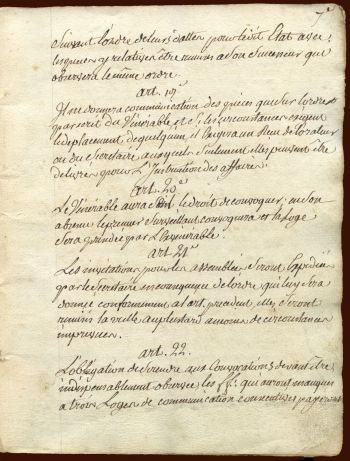 7e
Suivant l'ordre de leurs dattes, pour led. Etat avec
les pieces y relatives être remis a son Successeur qui
observera le même ordre.
art. 19e
Il ne donnera communication des pieces que sur l'ordre
par ecrit du Vénérable et si les circonstances exigent
le deplacement de quelqu'une, il exigera un Reçu de l'orateur
ou du Secretaire auxquels Seulement elles peuvent être
delivrées pour L'Instruction des affaires.
art. 20e
Le Vénérable aura seul le droit de convoquer, en son
absence le premier Surveillant convoquera et la Loge
Sera presidée par L'exvénérable.
art. 21e
Les invitations pour les assemblées Seront Expediées
par le Secretaire en consequence de l'ordre qui luy sera
donné conformement a l'art. precedent elles Seront
remises la veille au plus tard a moins de circonstances
imprevues.
art. 22.
L'obligation de se rendre aux Convocations devant être
indispensablement observée, les ff∴ qui auront manqué
a trois Loges de communication consecutives payeront